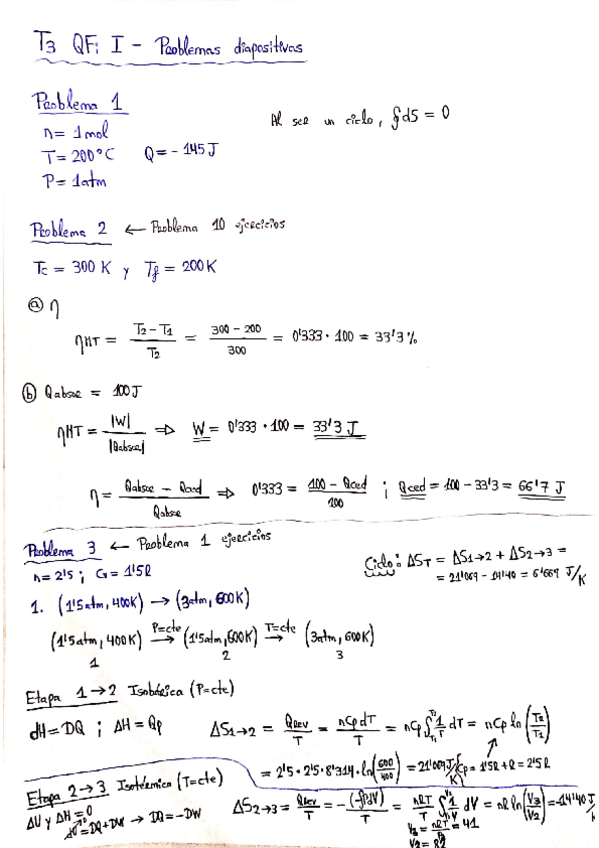 T3 QFi I - Problemas diapositivas
Problema 1
n = 1 mol
T = 200°C Q = - 145 J
P = 1 atm
Al ser un ciclo, ∮dS = 0
Problema 2 ← Problema 10 ejercicios
Tc = 300 K y Tf = 200 K
ⓐ η
ηHT = (T2 - T1)/T2 = (300 - 200)/300 = 0'333 · 100 = 33'3 %
ⓑ Qabsor = 100 J
ηHT = |W|/|Qabsor| ⇒ W = 0'333 · 100 = 33'3 J
η = (Qabsor - Qced)/Qabsor ⇒ 0'333 = (100 - Qced)/100 ; Qced = 100 - 33'3 = 66'7 J
Problema 3 ← Problema 1 ejercicios
n = 2'5 ; = 1'5R
Ciclo: ΔST = ΔS1→2 + ΔS2→3 =
= 21'069 - 14'40 = 6'669 J/K
1. (1'5 atm, 400K) → (3 atm, 600K)
(1'5 atm, 400K) P=cte → (1'5 atm, 600K) T=cte → (3 atm, 600K)
1 2 3
Etapa 1→2 Isobárica (P=cte)
dH = DQ ; ΔH = Qp ΔS1→2 = Qrev/T = nCpdT/T = nCp ∫T1 T2 1/T dT = nCp ln (T2/T1)
= 2'5 · 2'5 · 8'314 · ln(600/400) = 21'069 J/K { Cp = 1'5R + R = 2'5R
Etapa 2→3 Isotérmica (T=cte)
ΔU y ΔH = 0
= DQ + DW → DQ = -DW
ΔS2→3 = Qrev/T = -(-∫PdV)/T = nRT/T ∫ 1/V dV = nR ln(V3/V2) = -14'40 J/K
V3 = nRT/P = 41
V2 = 82